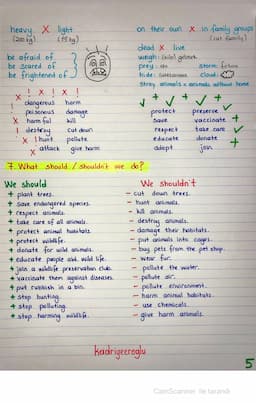 heavy X light
on their own X in family groups
dead X live
be afraid of
be scared of
be frightened of
weigh:
prey:
hide:
cloud:
Stray animals = animals without home
X ! X ! X
dangerous harm
poisonous damage
X harmful kill
! destroy cut down
X ! hunt pollute
X attack give harm
protect preserve
save vaccinate
respect take care
educate donate
adopt join
7. What should / shouldn't we do?
We should
+ plant trees.
+ save endangered species.
+ respect animals.
+ take care of all animals.
+ protect animal habitats
+ protect wildlife.
+ donate for wild animals.
+ educate people abt. wild life.
+ join a wildlife preservation club.
+ vaccinate them against diseases.
+ put rubbish in a bin.
+ stop hunting.
+ stop polluting.
+ stop harming wildlife.
We shouldn't
- cut down trees.
- hunt animals.
- kill animals.
- destroy animals.
- damage their habitats.
- put animals into cages.
- buy pets from the pet shop.
- wear fur.
- pollute the water.
- pollute air.
- pollute environment.
- harm animal habitats.
- use chemicals.
- give harm animals.
kadrigeeroglu
5
CamScanner ile tarandı